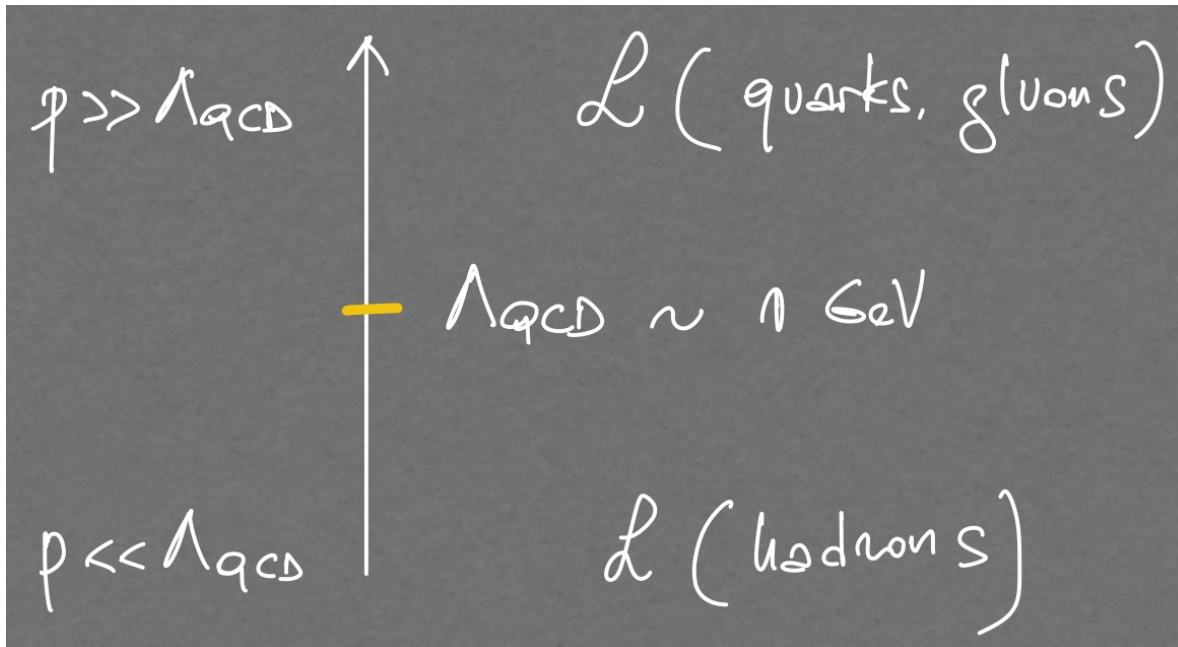 p >> Λ_QCD ℒ ( quarks, gluons )
Λ_QCD ~ 1 GeV
p << Λ_QCD ℒ ( hadrons )